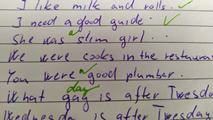 I like milk and rolls.
I need a good guide.
She was a slim girl...
We were cooks in the restauran
You were a good plumber.
day
What gay is after Twesda
Wednesda is after Twesda